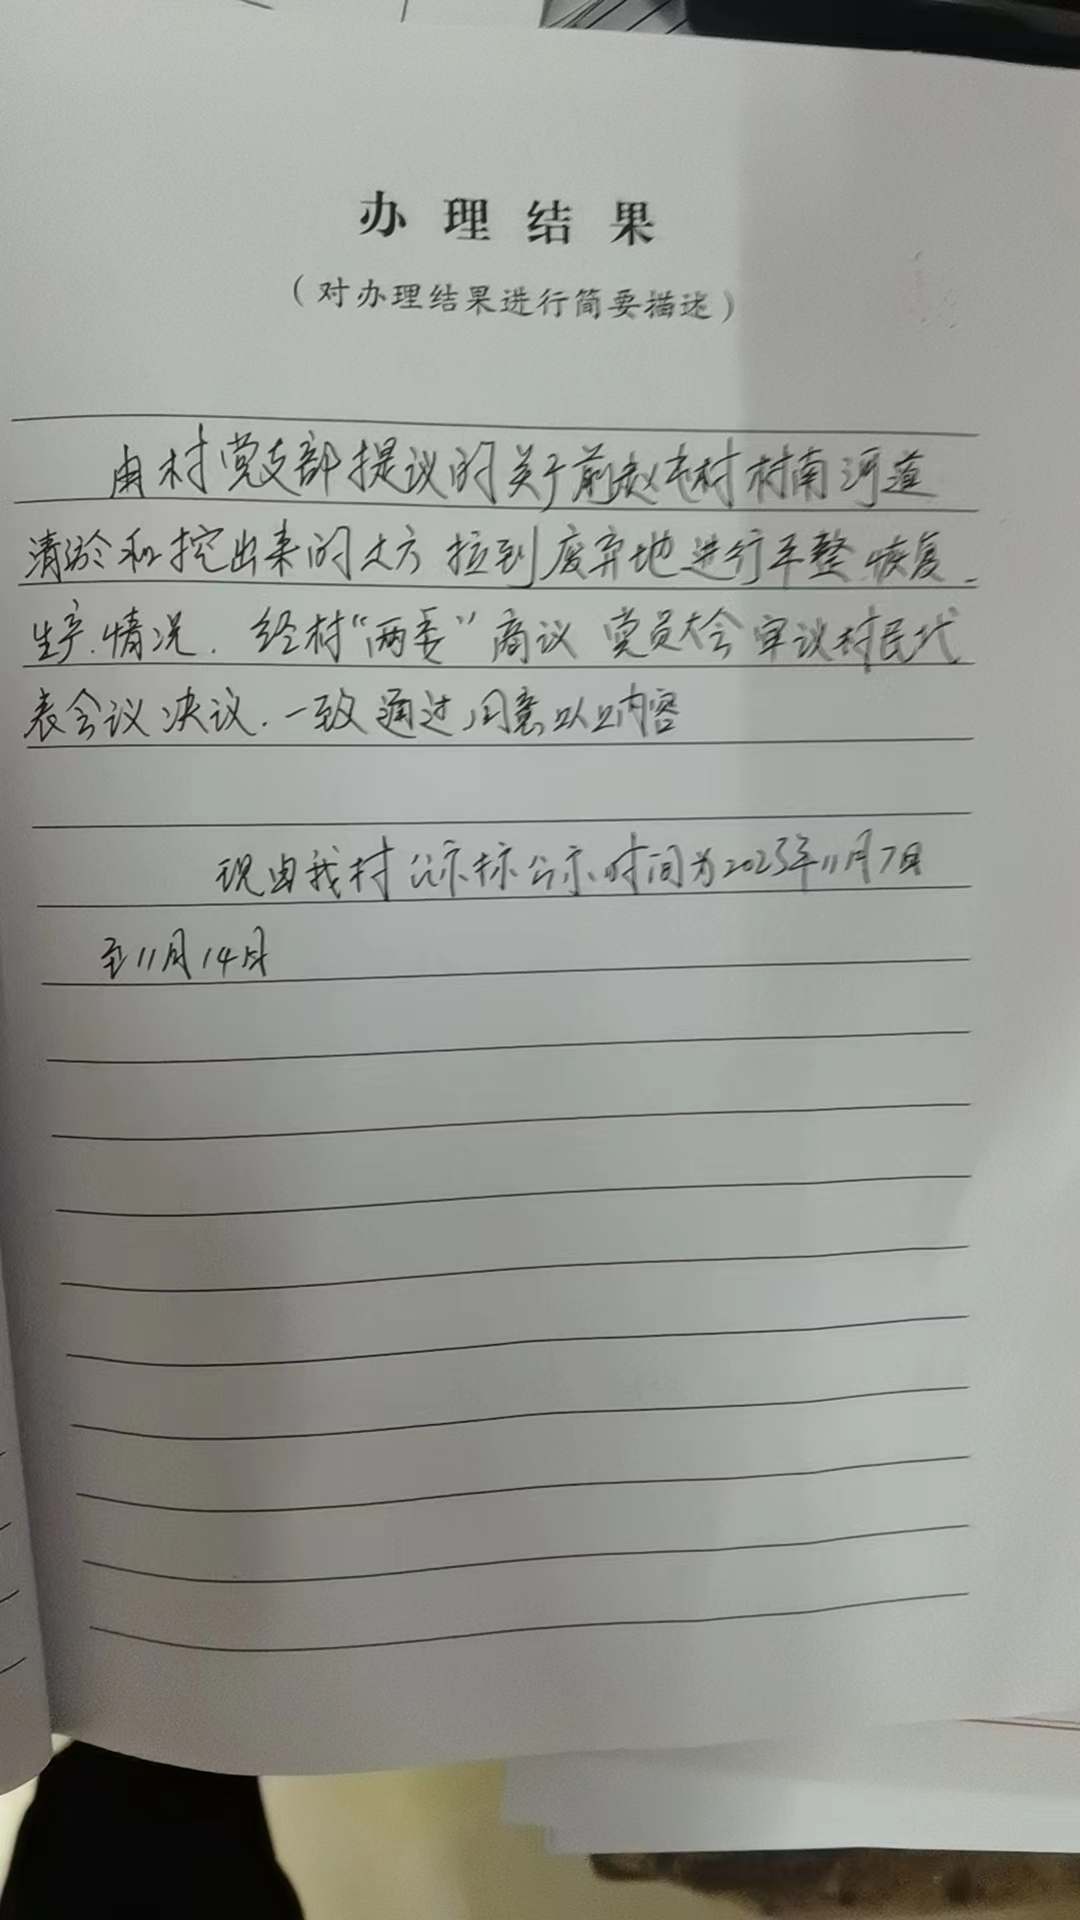 办理结果
（对办理结果进行简要描述）
由村党支部提议的关于前赵屯村村南河道
清淤和挖出来的土方拉到废弃地进行平整.恢复
生产.情况.经村“两委”商议 党员大会审议村民代
表会议决议.一致通过同意以上内容
现由我村公示.公示时间为2023年11月7日
至11月14日